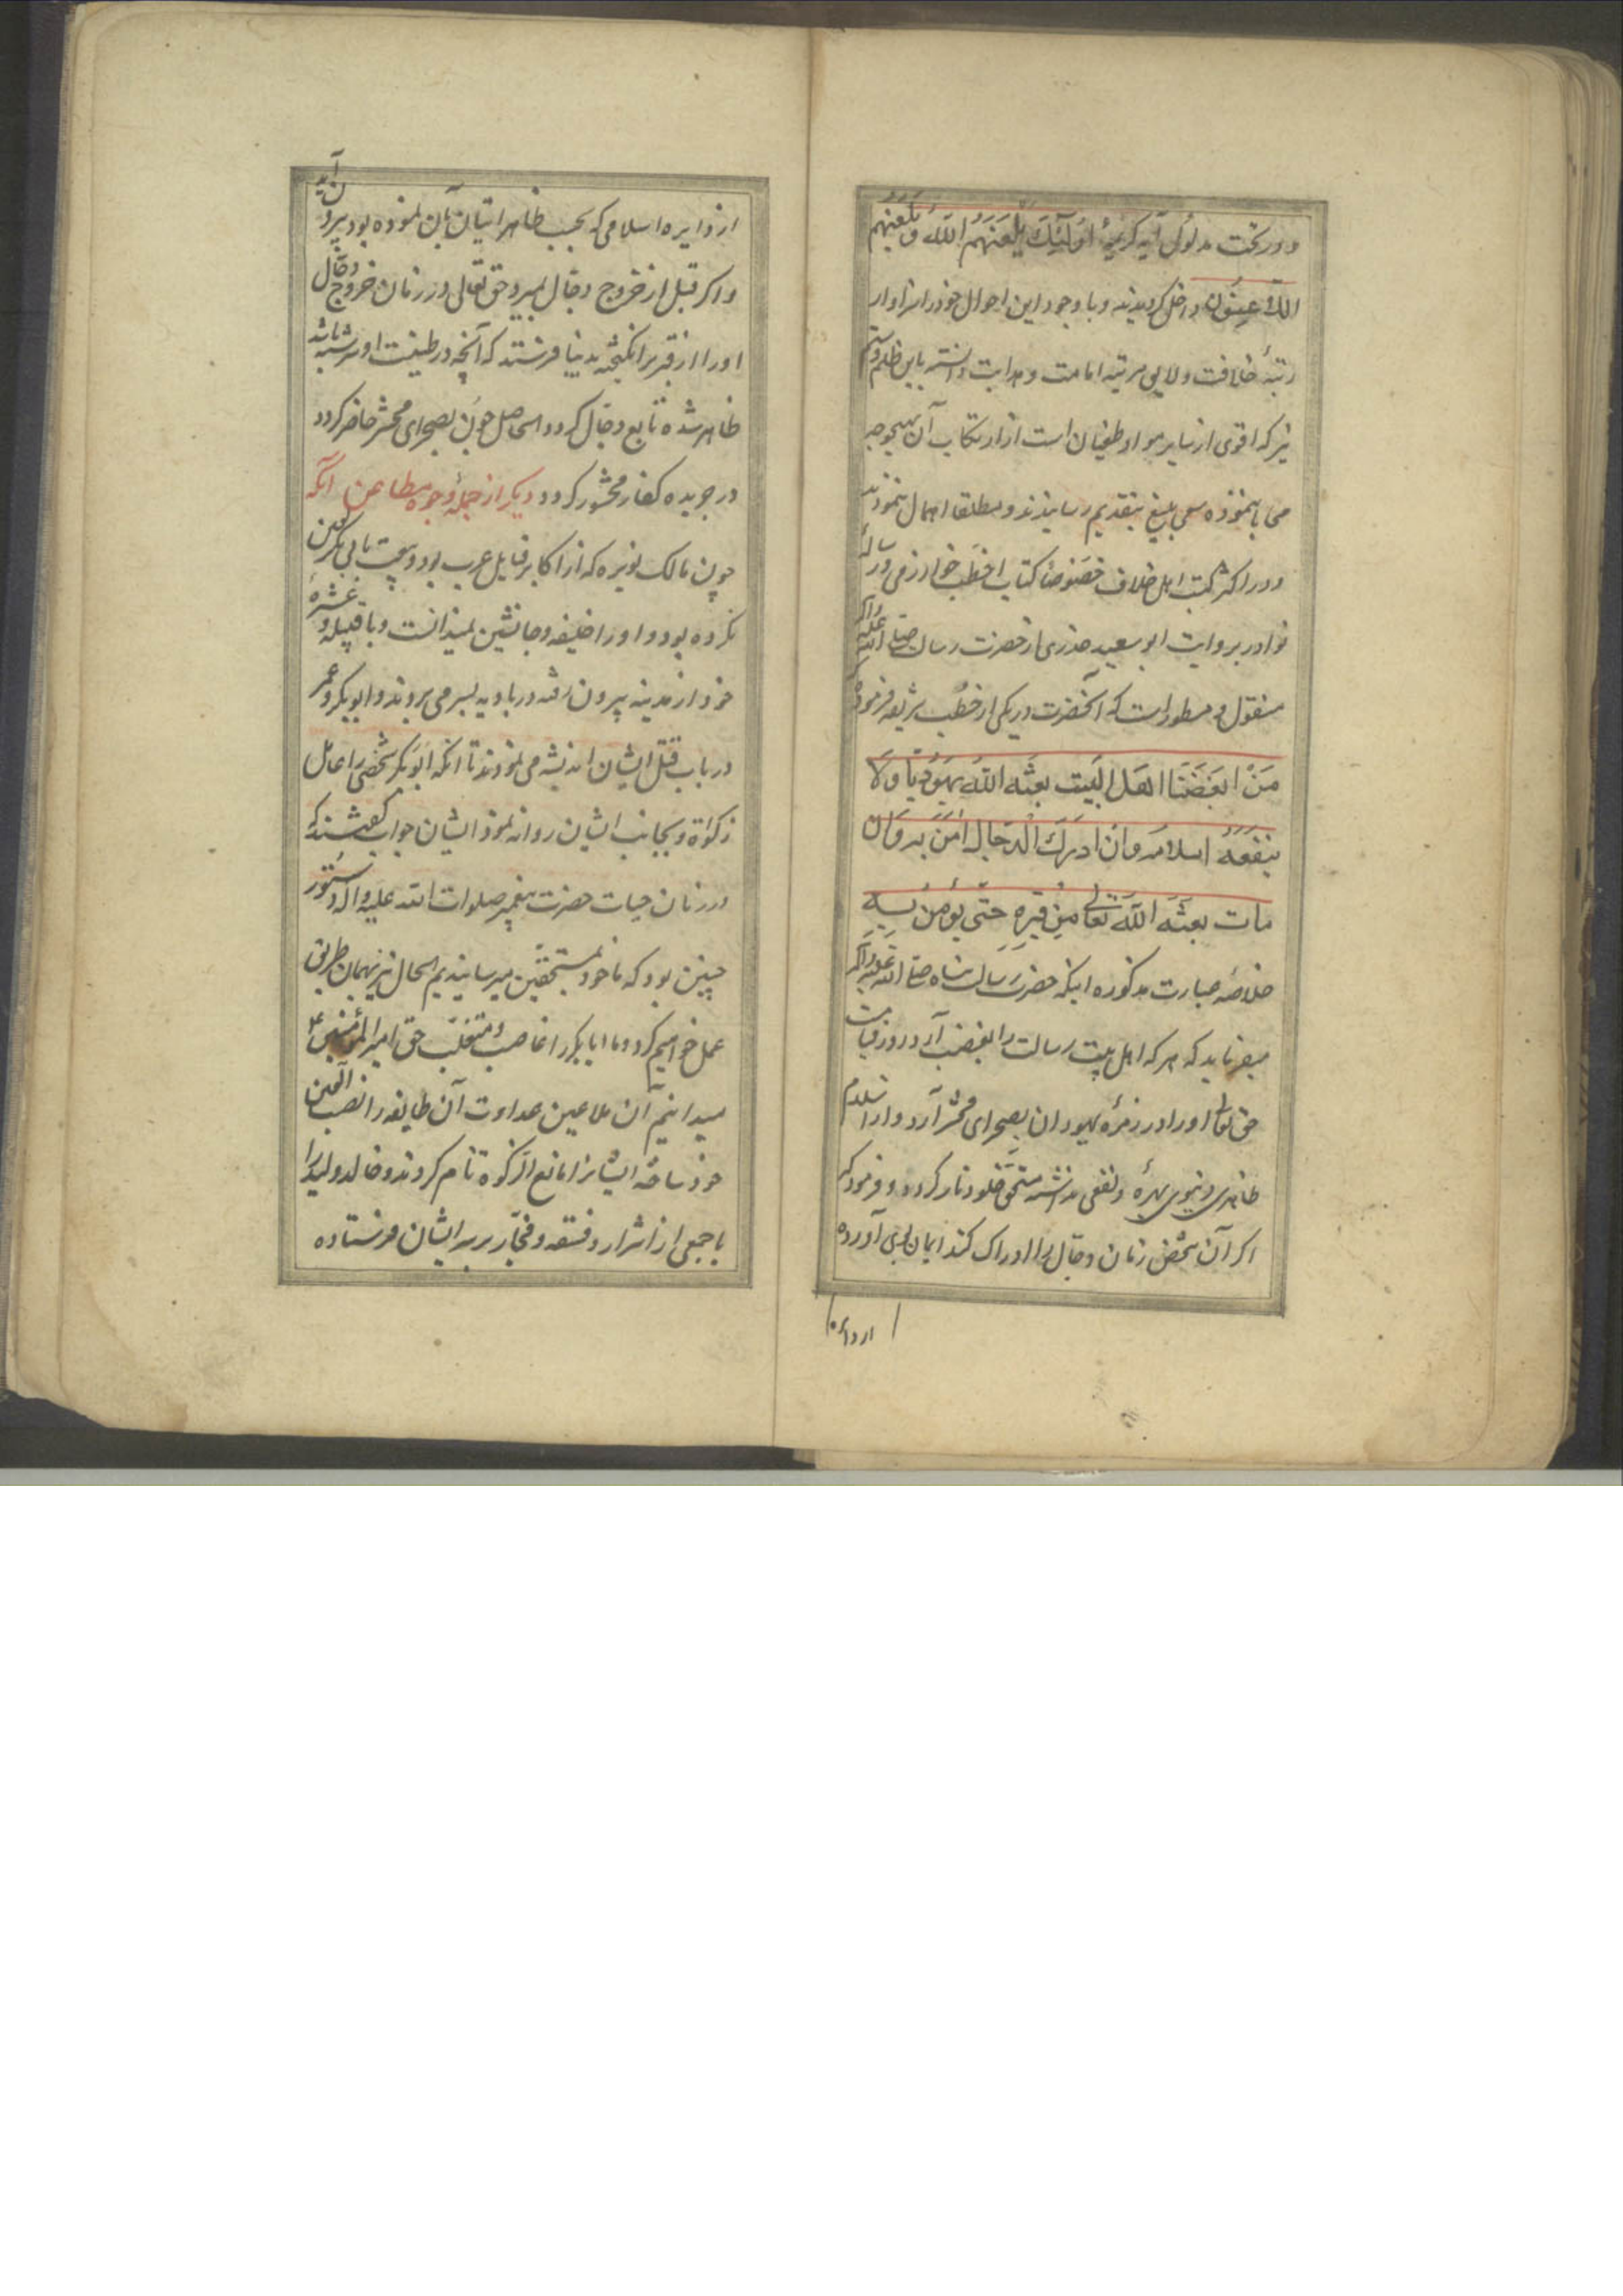 و در تحت مدلول آیه کریمهٔ اُولٰئِکَ یَلْعَنُهُمُ اللّٰهُ وَ یَلْعَنُهُم
اللّاعِنُونَ داخل کردیدند و با وجود این احوال خود را سزاوار
رتبهٔ خلافت و لایق مرتبه امامت و هدایت دانسته باین ظلم و ستم
نیز که اقوی از سایر مواد طغیان است از ارتکاب آن بهیچوجه
می بایمنوده سعی بلیغ بتقدیم رسانیدند و مطلقا اهمال ننمودند
و در اکثر کتب اهل خلاف خصوصا کتاب اخطب خوارزمی و رسالهٔ
نوادر بروایت ابو سعید خدری از حضرت رسالت صلی الله علیه و آله
منقول و مسطور است که آنحضرت در یکی از خطب شریفه فرموده که
مَنْ ابغَضَنَا اهَل البَیت بعثه اللّٰه یَهُودیّا وَلَا
ینفَعَهُ اسلامه وَانْ ادرَکَ الدَجّال اٰمَنَ به وَان
مات بعثَه اللّٰه تعالی مِنْ قبره حتّی یؤمن به
خلاصه عبارت مذکوره اینکه حضرت رسالت پناه صلی الله علیه و آله
میفرماید که هر که اهل بیت رسالت را بغضب آرد در روز قیامت
حق تعالی او را در زمرهٔ یهودان بصحرای محشر آرد و از اسلام
ظاهری دنیوی بهرهٔ و نفعی نداشته مستحق خلود نار کردد و فرمود که
اکر آن شخص زمان دجال را ادراک کند ایمان بوی آورده
از دایره
از دایره اسلامی که بحسب ظاهر اتیان بآن نموده بود بیرون آید
و اکر قبل از خروج دجال بمیرد حق تعالی در زمان خروج دجال
او را از قبر برانکیخته بدنیا فرستد که آنچه در طینت او سرشته باشد
ظاهر شده تابع دجال کردد الحاصل چون بصحرای محشر حاضر کردد
در جریده کفار محشور کردد دیکر از جملهٔ وجوه مطاعن آنکه
چون مالک نویره که از اکابر قبایل عرب بود و بیعت با ابی بکر لعین
نکرده بود و او را خلیفه و جانشین نمیدانست و با قبیله و عشیرهٔ
خود از مدینه بیرون رفته در بادیه بسر می بردند و ابو بکر و عمر
در باب قتل ایشان اندیشه می نمودند تا آنکه ابو بکر شخصی را عامل
زکواة و بجانب ایشان روانه نمود ایشان جواب گفتند که
در زمان حیات حضرت پیغمبر صلوات الله علیه و آله دستور
چنین بود که ما خود بمستحقین میرسانیدیم الحال نیز بهمان طریق
عمل خواهیم کرد و ما ابا بکر را غاصب و متغلب حق امیر المؤمنین ع
میدانیم آن ملاعین عداوت آن طایفه را نصب العین
خود ساخته ایشانرا مانع الزکوة نام کردند و خالد ولید را
با جمعی از اشرار و فسقه و فجار بر سر ایشان فرستاده